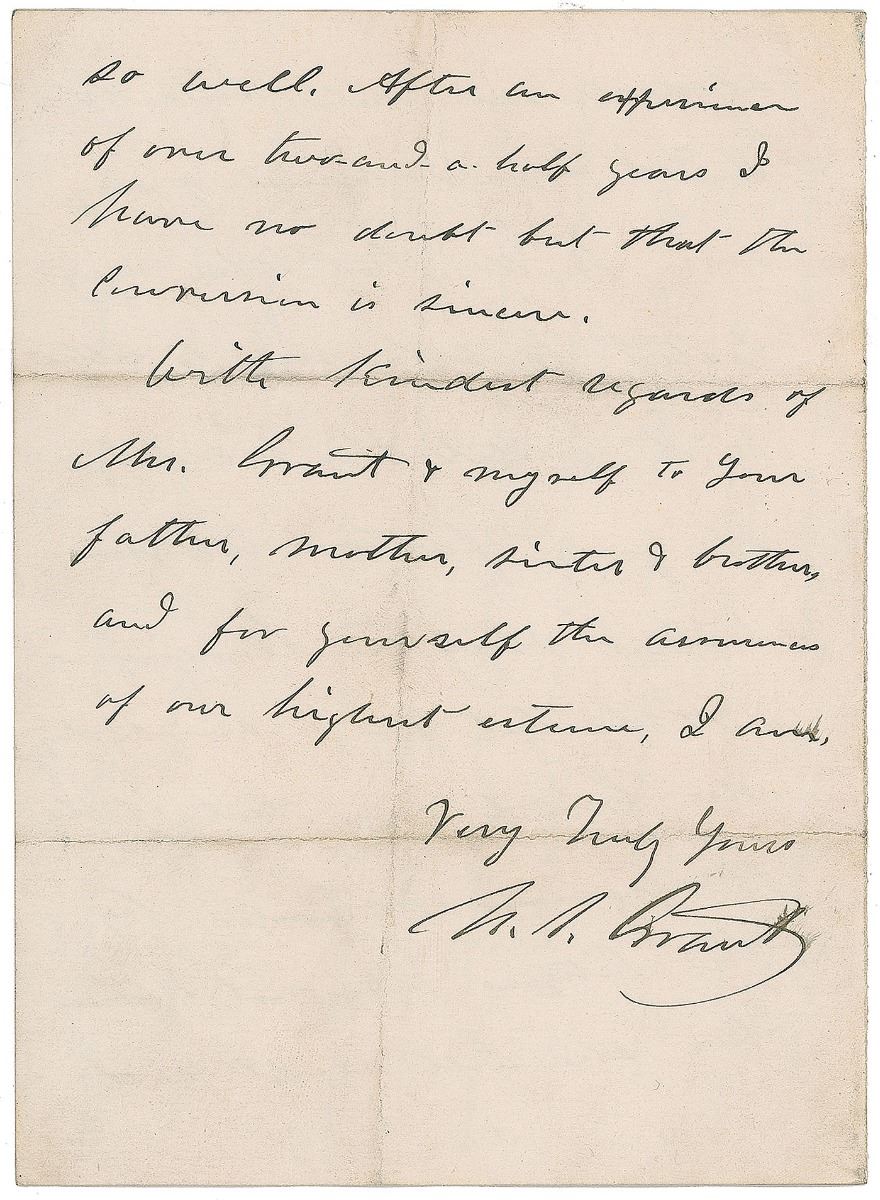 so well. After an experience
of over two-and-a-half years I
have no doubt but that the
Conversion is sincere.
With kindest regards of
Mrs. Grant & myself to your
father, mother, sister & brother,
and for yourself the assurances
of our highest esteem, I am,
Very Truly Yours
U. S. Grant